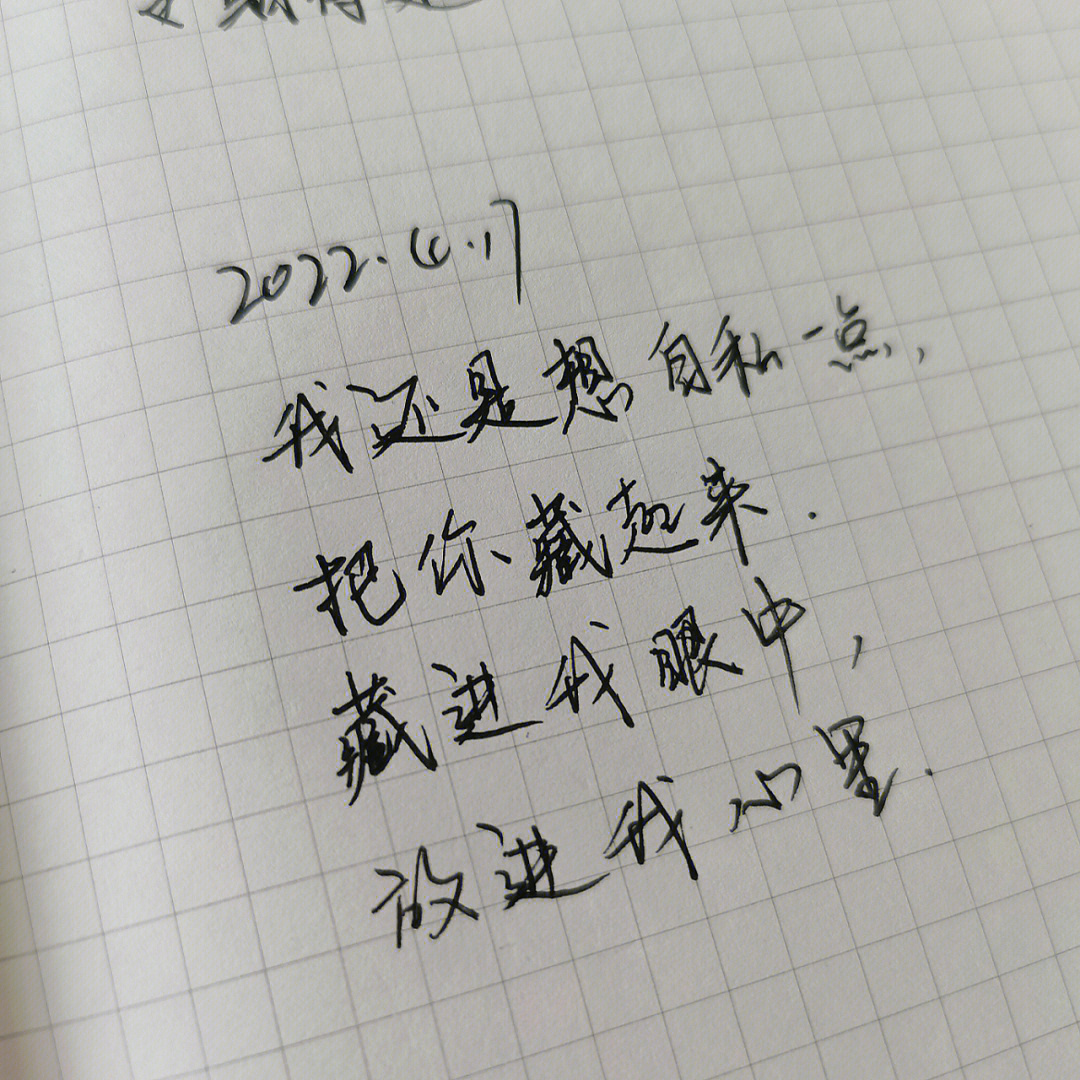 2022.4.17
我还是想自私一点,
把你藏起来.
藏进我眼中,
放进我心里.